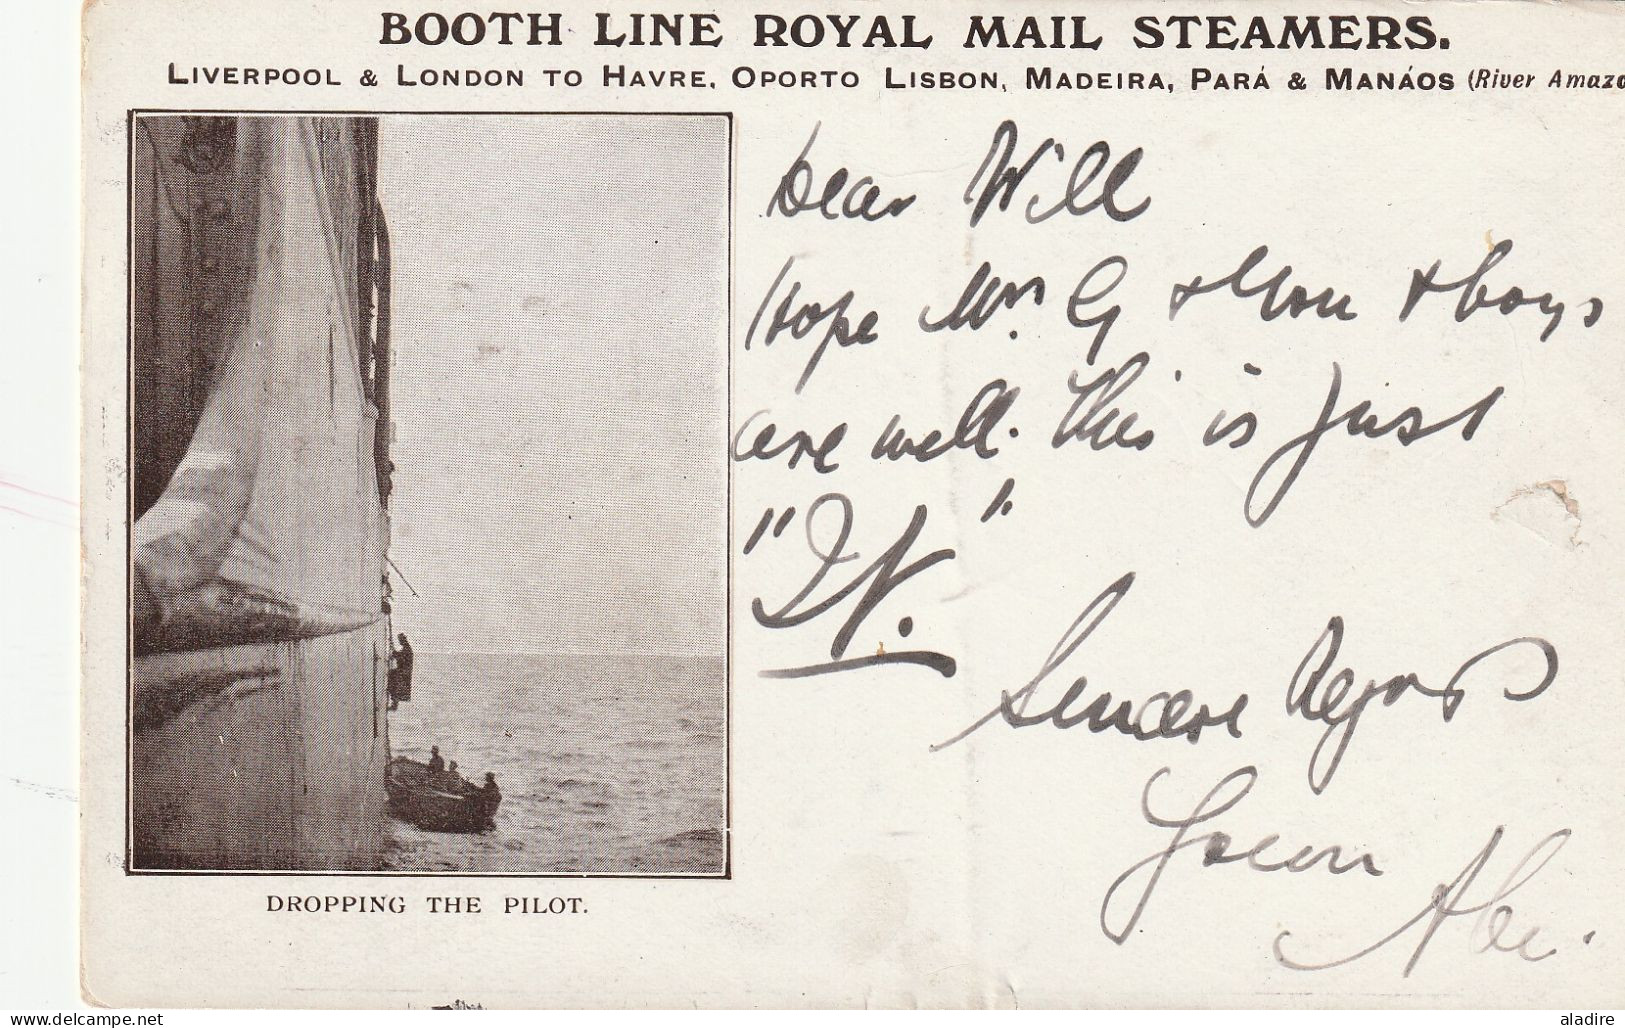 BOOTH LINE ROYAL MAIL STEAMERS.
LIVERPOOL & LONDON TO HAVRE, OPORTO LISBON, MADEIRA, PARÁ & MANÁOS (River Amazo
Dear Will
Hope Mrs. G & & boys
are well. This is just
"It."
Sincere Regards
Abe.
DROPPING THE PILOT.
www.delcampe.net
aladire